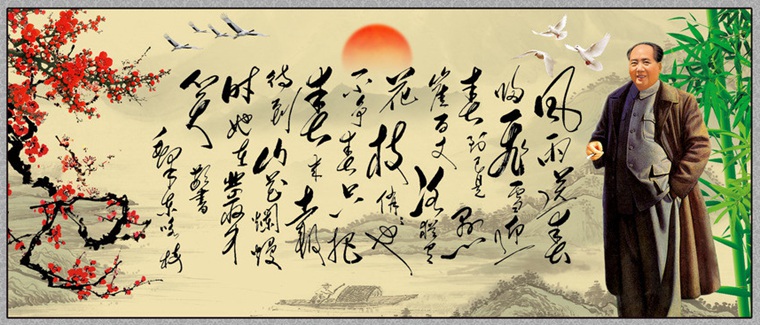 风雨送春
归飞雪迎
春到已是悬
崖百丈冰犹有
花枝俏俏也
不争春只把
春来报
待到山花爛熳
时她在丛中
笑 敬书
东咏梅